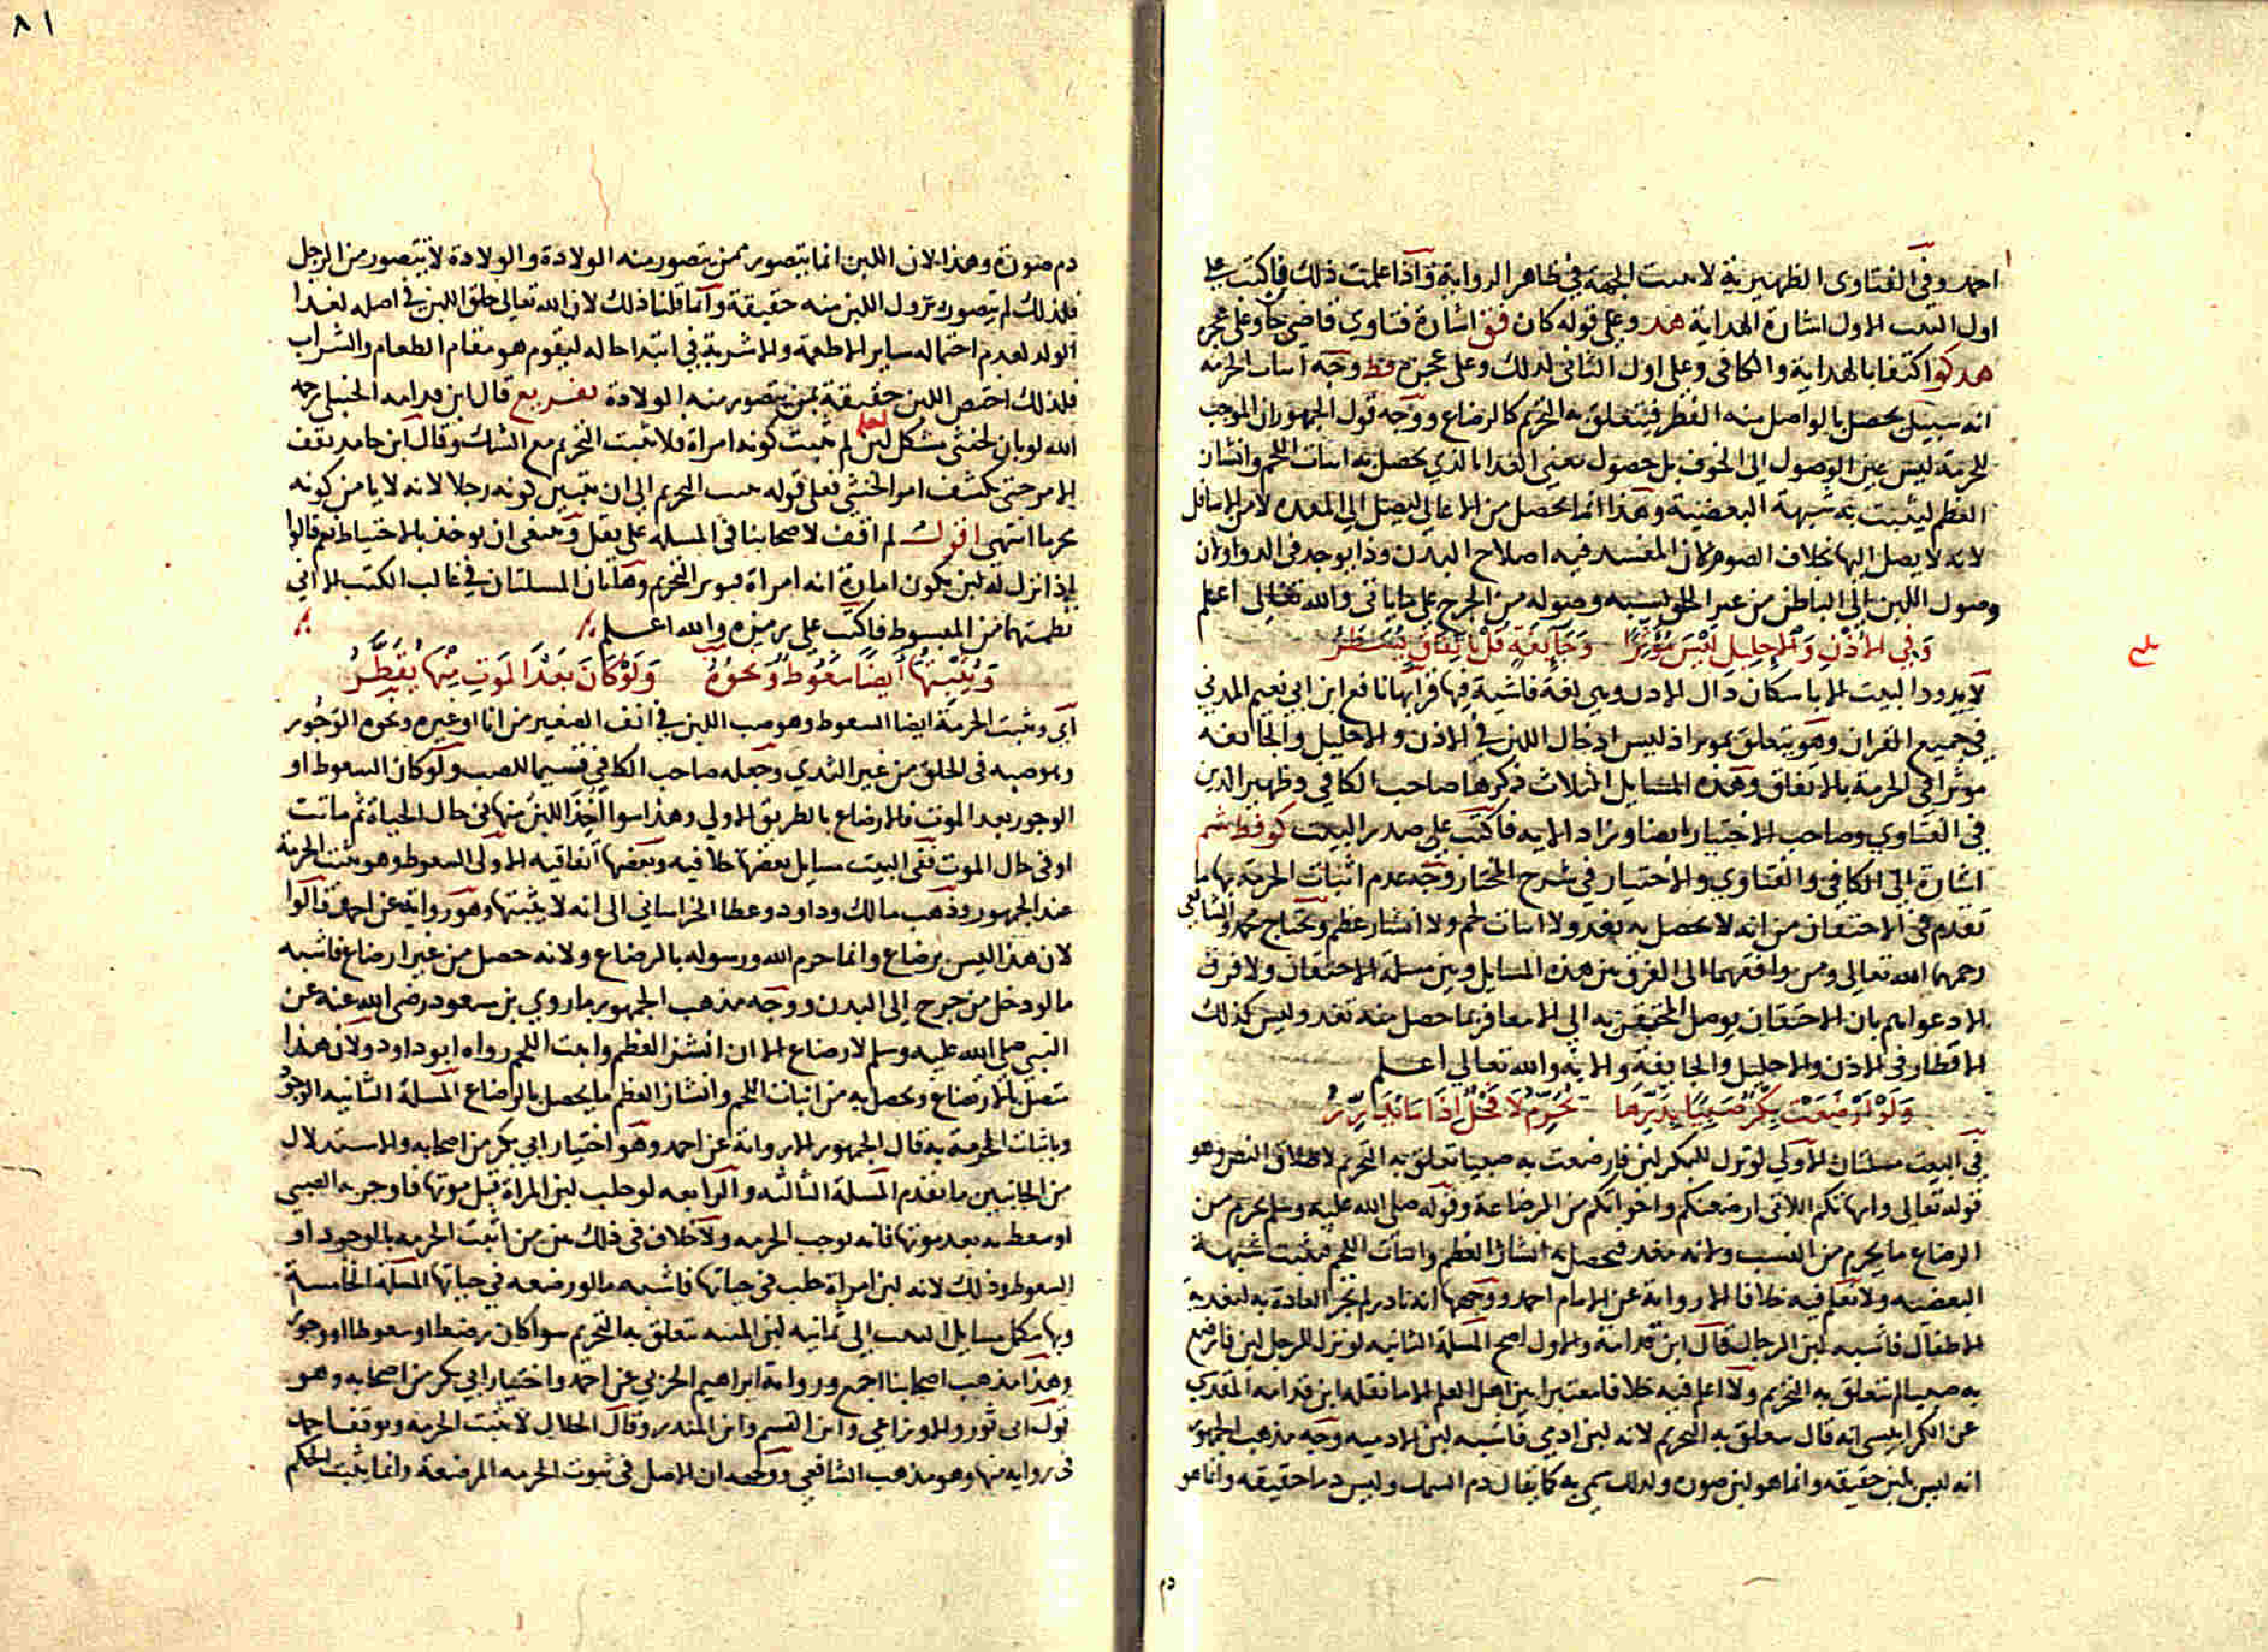 احمد وفي الفتاوى الظهيرية لا تثبت الحرمة في ظاهر الرواية فاذا علمت ذلك فاكتب على
اول البيت الاول اشارة الهداية هد وعلى قوله كان فق اشارة فتاوي قاضي خا وعلى عجز
هد كو اكتفا بالهداية والكافي وعلى اول الثاني لدلك وعلى عجزه فظ وجه اثبات الحرمة
انه سبيل يحصل بالواصل منه الفطر فيتعلق به التحريم كالرضاع ووجه قول الجمهور ان الموجب
للحرمة ليس عين الوصول الى الجوف بل حصول معنى الغذا الذي يحصل به انبات اللحم وانشاز
العظم ليثبت به شبهة البعضية وهذا انما يحصل من الاعالي ليصل الى المعدة لا من الاسافل
لانه لا يصل اليها بخلاف الصوم لان المفسد فيه اصلاح البدن وذا يوجد في الدوا وان
وصول اللبن الى الباطن من غير الحلق يشبه وصوله من الجرح على ما ياتي والله تعالى اعلم
وفي الاذن والاحليل ليس مؤثرا وجايفة قل باتفاق يسطر
لا يدور البيت الا باسكان ذال الاذن وهي لغة فاشية فيها قرا بها نافع ابن ابي نعيم المدني
في جميع القران وهو يتعلق بموثرا ذ ليس ادخال اللبن في الاذن والاحليل والجائفة
موثرا في الحرمة بالاتفاق وهذه المسايل الثلاث ذكرها صاحب الكافي وظهير الدين
في الفتاوي وصاحب الاختيار ايضا وزاد الامة فاكتب على صدر البيت كو فظ شم
اشارة الى الكافي والفتاوي والاختيار في شرح المختار وجه عدم اثبات الحرمة بها ما
تقدم في الاحتقان من انه لا يحصل به تغد ولا انبات لحم ولا انشاز عظم ويحتاج محمد والشافعي
رحمهما الله تعالى ومن وافقهما الى الفرق بين هذه المسايل وبين مسلة الاحتقان ولا فرق
الا دعواهم بان الاحتقان يوصل المحتقن به الى الامعا فربما حصل منه تغد وليس كذلك
الاقطار في الاذن والاحليل والجايفة والامة والله تعالى اعلم
ولو ارضعت بكر صبيا بدرها تحرم لا فحل اذا ما بدا يدر
في البيت مسلتان الاولى لو نزل للبكر لبن فارضعت به صبيا تعلق به التحريم لاطلاق النص وهو
قوله تعالى وامهاتكم اللاتي ارضعنكم واخواتكم من الرضاعة وقوله صلى الله عليه وسلم يحرم من
الرضاع ما يحرم من النسب ولانه مغد فيحصل به انشاز العظم وانبات اللحم فيثبت شبهة
البعضيه ولا نعلم فيه خلافا الا رواية عن الامام احمد ووجهها انه نادر لم تجر العادة به لتغدية
الاطفال فاشبه لبن الرجال قال ابن قدامة والاول اصح المسلة الثانيه لو نزل للرجل لبن فارضع
به صبيا لم يتعلق به التحريم ولا اعلم فيه خلافا معتبرا بين اهل العلم الا ما نقله ابن قدامه المقدسي
عن الكرابيسي انه قال يتعلق به التحريم لانه لبن ادمي فاشبه لبن الادميه وجه مذهب الجمهور
انه ليس بلبن حقيقه وانما هو لبن صورة ولذلك سمي به كما يقال دم السمك وليس دما حقيقه وانما هو
بلغ
دم
٨١
دم صورة وهذا لان اللبن انما يتصور ممن يتصور منه الولادة والولادة لا تتصور من الرجل
فلذلك لم يتصور نزول اللبن منه حقيقة وانما قلنا ذلك لان الله تعالى خلق اللبن في اصله لغدا
الولد لعدم احتماله ساير الاطعمة والاشربة في ابتدا حاله ليقوم هو مقام الطعام والشراب
فلذلك اختص اللبن حقيقة بمن يتصور منه الولادة تفريع قال ابن قدامه الحنبلي رحمه
الله لو بان لخنثى مشكل لبن لم يثبت كونه امراة فلا يثبت التحريم مع الشك وقال ابن حامد يقف
الامر حتى ينكشف امر الخنثى فعلى قوله يثبت التحريم الى ان يتبين كونه رجلا لانه لا يامن كونه
محرما انتهى اقول لم اقف لاصحابنا في المسلة على نقل وينبغي ان يوخذ بالاحتياط نعم قالوا
اذا نزل له لبن يكون امارة انه امراة فيوير التحريم وهاتان المسلتان في غالب الكتب الا اني
نظمتهما من المبسوط فاكتب على يرمزه والله اعلم
ويثبتها ايضا سعوط ونحوه ولو كان بعد الموت منها يقطر
اي ويثبت الحرمة ايضا السعوط وهو صب اللبن في انف الصغير من انا او غيره ونحوه الوجور
وهو صبه في الحلق من غير الثدي وجعله صاحب الكافي قسيما للصب ولو كان السعوط او
الوجور بعد الموت فالارضاع بالطريق الاولى وهذا سوا اخذ اللبن منها في حال الحياة ثم ماتت
او في حال الموت ففي البيت مسايل بعضها خلافيه وبعضها اتفاقيه الاولى السعوط وهو يثبت الحرمة
عند الجمهور وذهب مالك وداود وعطا الخراساني الى انه لا يثبتها وهو رواية عن احمد قالوا
لان هذا ليس برضاع وانما حرم الله ورسوله بالرضاع ولانه حصل من غير ارضاع فاشبه
ما لو دخل من جرح الى البدن ووجه مذهب الجمهور ما روي بن مسعود رضى الله عنه عن
النبي صلى الله عليه وسلم لا رضاع الا ان انشز العظم وانبت اللحم رواه ابو داود ولان هذا
يتصل بالارضاع ويحصل به من انبات اللحم وانشاز العظم ما يحصل بالرضاع المسلة الثانيه الوجور
وباثبات الحرمة به قال الجمهور الا رواية عن احمد وهو اختيار ابي بكر من اصحابه والاستدلال
من الجانبين ما تقدم المسلة الثالثه والرابعه لو حلب لبن المراة قبل موتها فاوجر به الصبي
او سعط به بعد موتها فانه يوجب الحرمه ولا خلاف في ذلك بين من اثبت الحرمه بالوجور او
السعوط وذلك لانه لبن امراة حلب في حياتها فاشبه ما لو رضعه في حياتها المسلة الخامسة
وبها تكمل مسايل البيت الى ثمانيه لبن الميته يتعلق به التحريم سوا كان رضعا او سعوطا او وجورا
وهذا مذهب اصحابنا اجمع ورواية ابراهيم الحربي عن احمد واختيار ابي بكر من اصحابه وهو
قول ابي ثور والاوزاعي وابن القسم وابن المنذر وقال الخلال لا يثبت الحرمه وتوقف احمد
في روايه منها وهو مذهب الشافعي ووجهه ان الاصل في ثبوت الحرمه المرضعة وانما يثبت الحكم